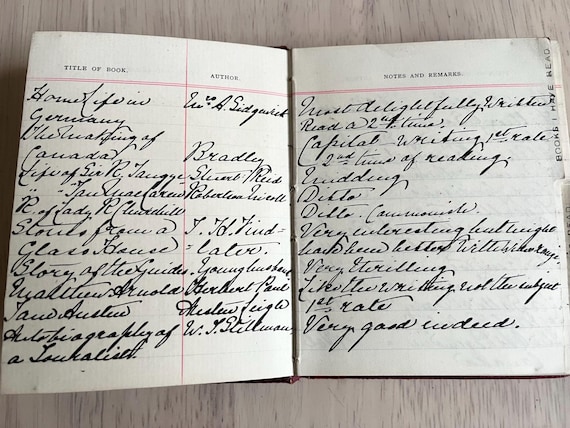 TITLE OF BOOK. AUTHOR.
Home Life in Mrs A. Sidgwick
Germany
The Making of
Canada Bradley
Life of Sir R. Tangye Stuart Reid
" - Ian Maclaren Robertson Nicoll
R. of Lady R. Churchill
Stones from a J. H. Find-
Glass House - later.
Story of the Guides. Younghusband
Matthew Arnold Herbert Paul
Jane Austen Austen Leigh
Autobiography of W. J. Stillman
a Journalist
NOTES AND REMARKS.
Most delightfully written
Read a 2nd time.
Capital - writing 1st rate
2nd time of reading.
Middling
Ditto
Ditto. Commonish
Very interesting but might
have been better
Very thrilling
Like the writing. not the subject
1st rate
Very good indeed.
BOOKS I HAVE READ